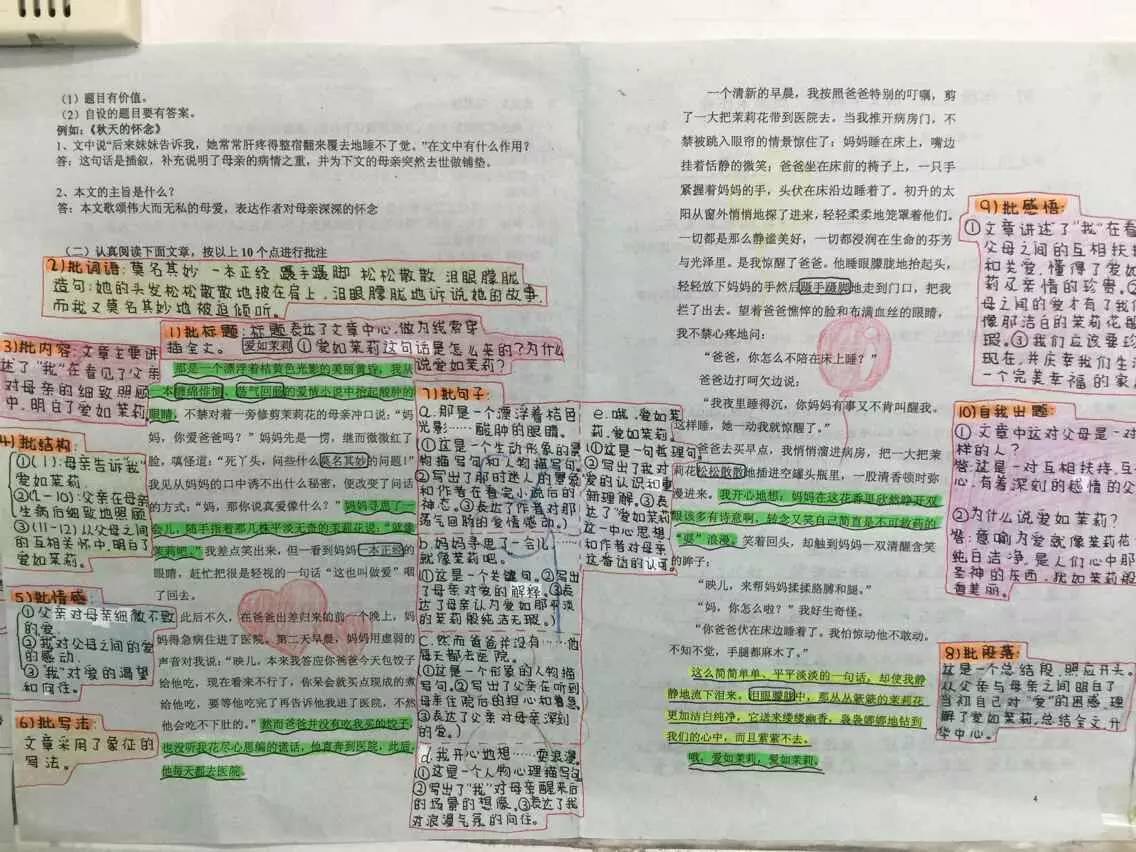 （1）题目有价值。
（2）自设的题目要有答案。
例如：《秋天的怀念》
1、文中说“后来妹妹告诉我，她常常肝疼得整宿翻来覆去地睡不了觉。”在文中有什么作用？
答：这句话是插叙，补充说明了母亲的病情之重，并为下文的母亲突然去世做铺垫。
2、本文的主旨是什么？
答：本文歌颂伟大而无私的母爱，表达作者对母亲深深的怀念
（二）认真阅读下面文章，按以上10个点进行批注
2)批词语：莫名其妙 一本正经 蹑手蹑脚 松松散散 泪眼朦胧
造句：她的头发松松散散地披在肩上，泪眼朦胧地诉说她的故事，
而我又莫名其妙地被迫倾听。
1)批标题：标题表达了文章中心，做为线索穿
插全文。
爱如茉莉
①爱如茉莉这句话是怎么来的？为什么
说爱如茉莉？
3)批内容：文章主要讲
述了“我”在看见了父亲
对母亲的细致照顾
中，明白了爱如茉莉
4)批结构：
①(1)：母亲告诉我
爱如茉莉。
②(2-10)：父亲在母亲
生病后细致地照顾
③(11-12)从父母之间
的互相关怀中，明白
爱如茉莉。
5)批情感：
①父亲对母亲细微不致
的爱。
②我对父母之间的爱
的感动。
③“我”对爱的渴望
和向往。
6)批写法：
文章采用了象征的
写法。
那是一个漂浮着桔黄色光影的美丽黄昏，我从
一本缠绵悱恻、荡气回肠的爱情小说中抬起酸肿的
眼睛，不禁对着一旁修剪茉莉花的母亲冲口说：“妈
妈，你爱爸爸吗？”妈妈先是一愣，继而微微红了
脸，嗔怪道：“死丫头，问些什么莫名其妙的问题！”
我见从妈妈的口中诱不出什么秘密，便改变了问话
的方式：“妈，那你说真爱像什么？”妈妈寻思了一
会儿，随手指着那几株平淡无奇的茉莉花说：“就像
茉莉吧。”我差点笑出来，但一看到妈妈一本正经的
眼睛，赶忙把很是轻视的一句话“这也叫做爱”咽
了回去。
此后不久，在爸爸出差归来的前一个晚上，妈
妈得急病住进了医院。第二天早晨，妈妈用虚弱的
声音对我说：“映儿，本来我答应你爸爸今天包饺子
给他吃，现在看来不行了，你呆会就买点现成的煮
给他吃，要等他吃完了再告诉他我进了医院，不然
他会吃不下肚的。”然而爸爸并没有吃我买的饺子，
也没听我花尽心思编的谎话，他直奔到医院，此后，
他每天都去医院。
7)批句子：
a.那是一个漂浮着桔色
光影……酸肿的眼睛。
①这是一个生动形象的景
物描写句和人物描写句。
②写出了那时迷人的景象
和作者在看完小说后的
神态。③表达了作者对那
荡气回肠的爱情感动。)
b.妈妈寻思了一会儿……
就像茉莉吧。
①这是一个关键句。②写出
了母亲对爱的解释。③表
达了母亲认为爱如那平淡
的茉莉般纯洁无瑕。)
c.然而爸爸并没有……他
每天都去医院。
①这是一个形象的人物描
写句。②写出了父亲在听到
母亲住院后的担心和着急
③表达了父亲对母亲深刻
的爱。)
d.我开心地想……耍浪漫。
①这是一个人物心理描写句
②写出了“我”对母亲醒来后
的场景的想像。③表达了我
对浪漫气氛的向往。
e.哦，爱如茉
莉，爱如茉莉。
①这是一句哲理句
②写出了我对
爱的认识和重
新理解。③表
达了“爱如茉莉”
这一中心思想
和作者对母亲
这番边的认可。
一个清新的早晨，我按照爸爸特别的叮嘱，剪
了一大把茉莉花带到医院去。当我推开病房门，不
禁被跳入眼帘的情景惊住了：妈妈睡在床上，嘴边
挂着恬静的微笑；爸爸坐在床前的椅子上，一只手
紧握着妈妈的手，头伏在床沿边睡着了。初升的太
阳从窗外悄悄地探了进来，轻轻柔柔地笼罩着他们。
一切都是那么静谧美好，一切都浸润在生命的芬芳
与光泽里。是我惊醒了爸爸。他睡眼朦胧地抬起头，
轻轻放下妈妈的手然后蹑手蹑脚地走到门口，把我
拦了出去。望着爸爸憔悴的脸和布满血丝的眼睛，
我不禁心疼地问：
“爸爸，你怎么不陪在床上睡？”
爸爸边打呵欠边说：
“我夜里睡得沉，你妈妈有事又不肯叫醒我。
这样睡，她一动我就惊醒了。”
爸爸去买早点，我悄悄溜进病房，把一大把茉
莉花松松散散地插进空罐头瓶里，一股清香顿时弥
漫进来。我开心地想：妈妈在这花香里欣然睁开双
眼该多有诗意啊，转念又笑自己简直是不可救药的
“耍”浪漫。笑着回头，却触到妈妈一双清醒含笑
的眸子：
“映儿，来帮妈妈揉揉胳膊和腿。”
“妈，你怎么啦？”我好生奇怪。
“你爸爸伏在床边睡着了。我怕惊动他不敢动。
不知不觉，手腿都麻木了。”
这么简简单单、平平淡淡的一句话，却使我静
静地流下泪来。泪眼朦胧中，那丛丛簇簇的茉莉花
更加洁白纯净，它送来缕缕幽香，袅袅娜娜地钻到
我们的心中，而且萦萦不去。
哦，爱如茉莉，爱如茉莉。
9)批感悟：
①文章讲述了“我”在看
父母之间的互相扶持
和关爱，懂得了爱如
莉及亲情的珍贵。②
母之间的爱才有了我们
像那洁白的茉莉花般
瑕。③我们应该要珍
现在，并庆幸我们生
一个完美幸福的家
10)自我出题：
①文章中这对父母是一对
样的人？
答：这是一对互相扶持，互
心，有着深刻的感情的父
②为什么说爱如茉莉？
答：意喻为爱就像茉莉花
纯白洁净，是人们心中那
圣神的东西，犹如茉莉般
香美丽。
8)批段落：
这是一个总结段，照应开头，
从父亲与母亲之间明白了
当初自己对“爱”的困惑，理
解了爱如茉莉，总结全文，升
华中心。
4